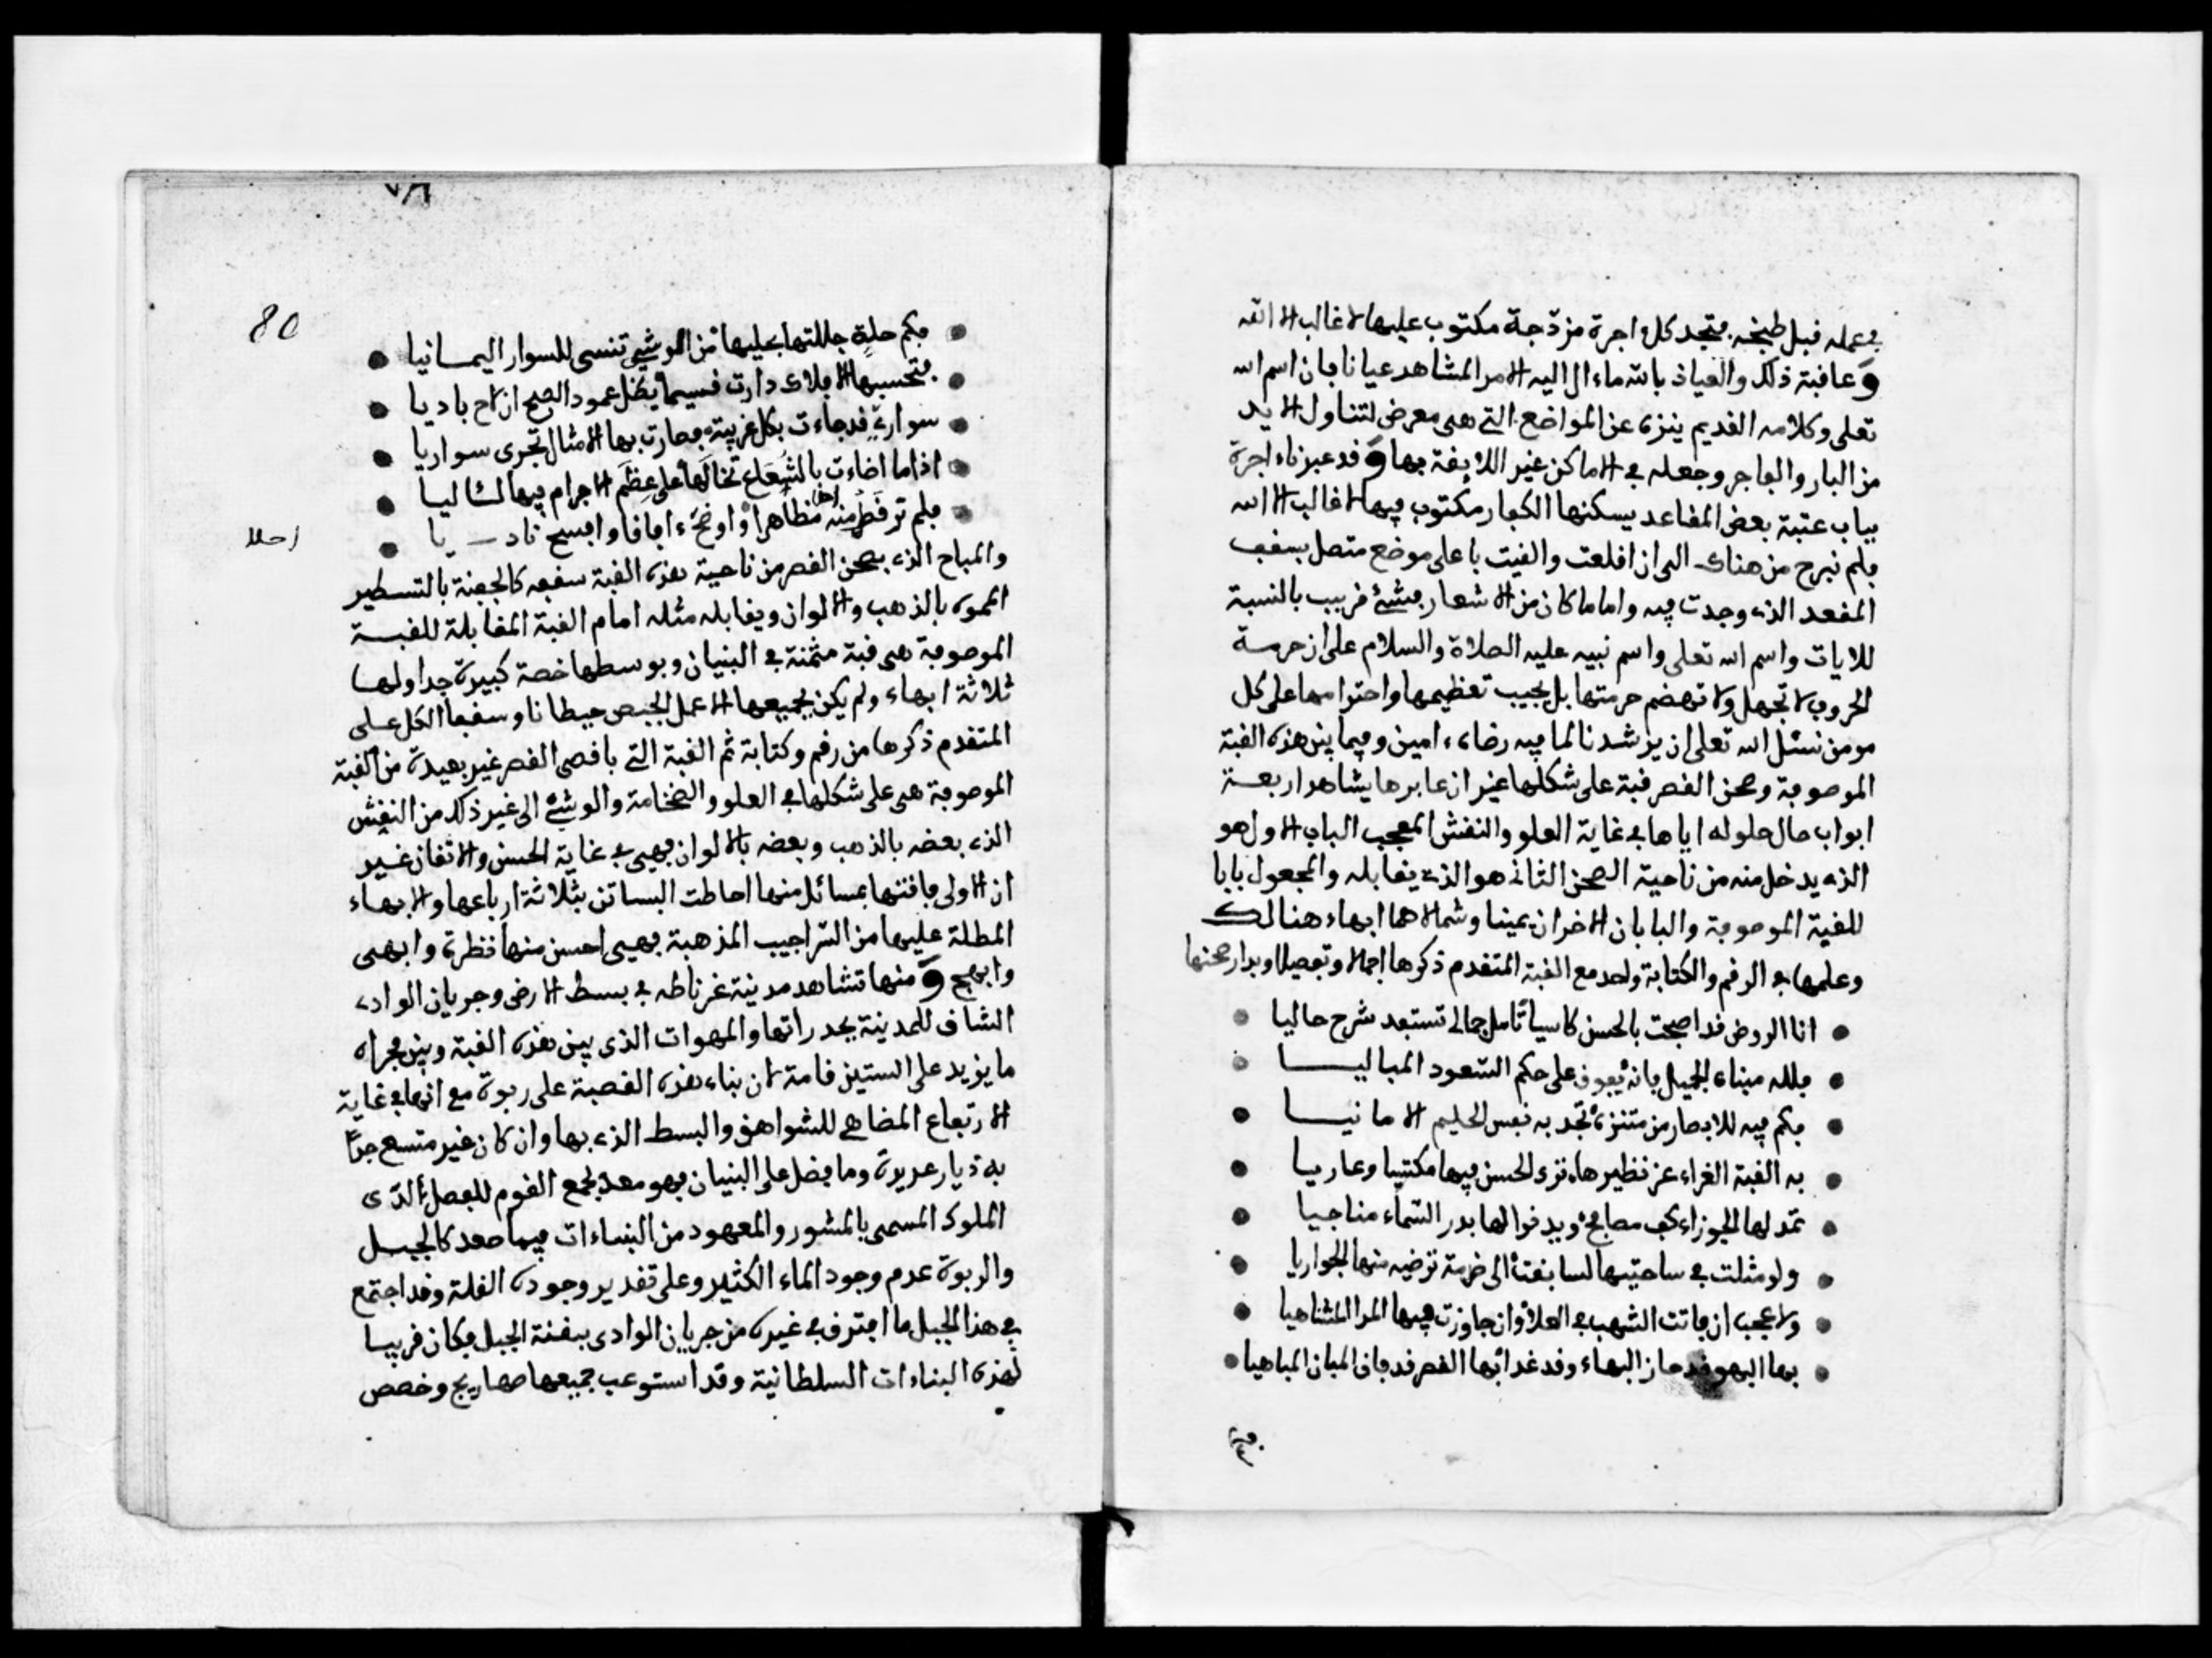 في عمله قبل طبخه فتجد كل اجرة مزدجة مكتوب عليها لا غالب الا الله
و عاقبة ذلك والعياذ بالله ماءال اليه الامر المشاهد عيانا فان اسم الله
تعلى وكلامه القديم ينزه عن المواضع التي هي معرض لتناول الايد
من البار والفاجر وجعله في الاماكن غير اللايقة بها و قد عبزناء اجرة
بباب عتبة بعض المقاعد يسكنها الكفار مكتوب فيها لا غالب الا الله
فلم نبرح من هناك الى ان اقلعت والقيت باعلى موضع متصل بسقف
المقعد الذي وجدت فيه واما ما كان من الاشعار فشئ قريب بالنسبة
للايات واسم الله تعلى واسم نبيه عليه الصلاة والسلام على ان حرمة
الحروف لا تجهل ولا تهضم حرمتها بل يجب تعظيمها واحترامها على كل
مومن نسئل الله تعلى ان يرشدنا لما فيه رضاه ءامين وفيما بين هذه القبة
الموصوفة وصحن القصر قبة على شكلها غير ان عابرها يشاهد اربعة
ابواب حال حلوله اياها في غاية العلو والنقش المعجب الباب الاول هو
الذي يدخل منه من ناحية الصحن الثاني هو الذي يقابله والمجعول بابا
للقبة الموصوفة والبابان الاخران يمينا وشمالا هما ابهاء هنالك
وعلمها في الرقم والكتابة واحد مع القبة المتقدم ذكرها اجمالا وتفصيلا وبدار صحنها
انا الروض قد اصبحت بالحسن كاسيا تامل جمالي تستفد شرح حاليا
فلله مبناه الجميل فانه يفوق على حكم السعود المباليـــا
فكم فيه للابصار من متنزه تجد به نفس الحليم الامانيـــا
به القبة الغراء عز نظيرها ترى الحسن فيها مكتسيا وعاريا
تمد لها الجوزاء كف مصافح ويدنوا لها بدر السماء مناجيا
ولو مثلت في ساحتيها لسابقت الى خدمة ترضيه منها الجواريا
ولا عجب ان فاتت الشهب في العلا وان جاوزت فيها المدا المتناهيا
بها البهو قد حاز البهاء وقد غدا بها القصر قد فاق المبان المباهيا
فكم
٧٦
80
فكم حلة جللتها بحليها من الوشي تنسى للسوار اليمـانيا
فتحسبها الافلاك دارت قسيها يظل عمود الصبح ان لاح باديا
سواري قد جاءت بكل غريبة فصارت بها الامثال تجرى سواريا
اذا ما اضاءت بالشعاع تخالها على عظم الاجرام فيها لئاليـا
فلم تر قصرا منه مظاهرا واوضح ءافاقا وافسح ناديـا
والمباح الذي بصحن القصر من ناحية هذه القبة سقفه كالجفنة بالتسطير
المموه بالذهب والالوان ويقابله مثله امام القبة المقابلة للقبــة
الموصوفة هى قبة مثمنة في البنيان وبوسطها خصة كبيرة جدا ولهـا
ثلاثة ابهاء ولم يكن بجميعها الا عمل الجبص حيطانا وسقفا الكل علـى
المتقدم ذكرها من رقم وكتابة ثم القبة التي باقصى القصر غير بعيدة من القبة
الموصوفة هى على شكلها في العلو والضخامة والوشي الى غير ذلك من النقش
الذي بعضه بالذهب وبعضه بالالوان فهى في غاية الحسن والاتقان غيــر
ان الاولى فاقتها بمسائل منها احاطت البساتن بثلاثة ارباعها والابهـاء
المطلة عليها من السراجيب المذهبة فهى احسن منها نظرة وابهى
وابهج و منها تشاهد مدينة غرناطه في بسط الارض وجريان الوادي
الشاق للمدينة بجدراتها والمهوات الذي بين هذه القبة وبين مجراه
ما يزيد على الستين قامة لان بناء هذه القصبة على ربوة مع انها في غاية
الارتفاع المضاهي للشواهق والبسط الذي بها وان كان غير متسع جدا
به ديار عديدة وما فضل على البنيان فهو معد لجمع القوم للفصل الدى
الملوك المسمى بالمشور والمعهود من البناءات فيما صعد كالجبـل
والربوة عدم وجود الماء الكثير وعلى تقدير وجوده القلة وقد اجتمع
في هذا الجبل ما افترق في غيره من جريان الوادى بقنة الجبل فكان قريبـا
لهذه البناءات السلطانية وقد استوعب جميعها صهاريج وخصص